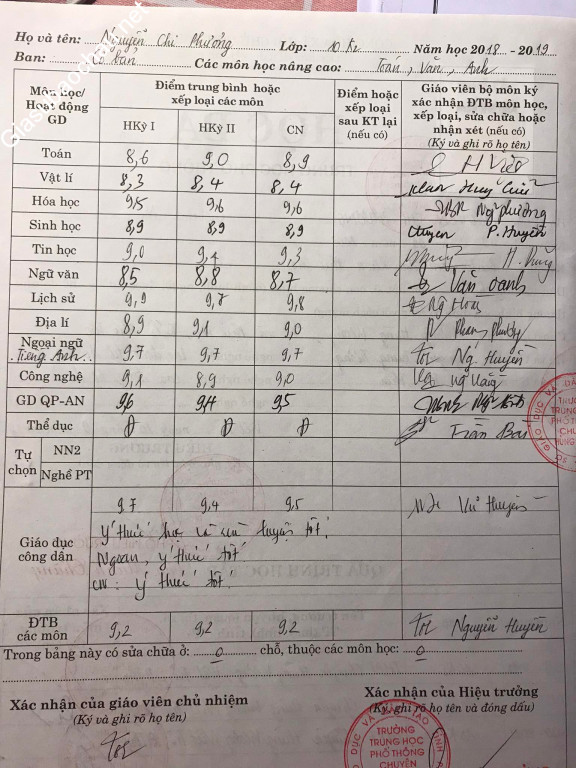 Họ và tên: Nguyễn Chi Phương Lớp: 10 K2 Năm học 2018 - 2019
Ban: Cơ bản Các môn học nâng cao: Toán, Văn, Anh
Môn học/ Hoạt động GD
Điểm trung bình hoặc xếp loại các môn
HKỳ I HKỳ II CN
Điểm hoặc xếp loại sau KT lại (nếu có)
Giáo viên bộ môn ký xác nhận ĐTB môn học, xếp loại, sửa chữa hoặc nhận xét (nếu có)
(Ký và ghi rõ họ tên)
Toán 8,6 9,0 8,9
Vật lí 8,3 8,4 8,4
Hóa học 9,5 9,6 9,6 Ng Phương
Sinh học 8,9 8,9 8,9 P. Huyền
Tin học 9,0 9,4 9,3
Ngữ văn 8,5 8,8 8,7 Văn Oanh
Lịch sử 9,9 9,8
Địa lí 8,9 9,1 9,0
Ngoại ngữ 9,7 9,7 9,7 Ng. Huyền
Tiếng Anh
Công nghệ 9,1 8,9 9,0
GD QP-AN 9,6 9,4 9,5
Thể dục Đ Đ Đ Trần
Tự chọn
NN2
Nghề PT
Giáo dục công dân 9,7 9,4 9,5 Vũ Huyền
Ý thức học và rèn luyện tốt.
Ngoan, ý thức tốt
CN: Ý thức tốt
ĐTB các môn 9,2 9,2 9,2 Nguyễn Huyền
Trong bảng này có sửa chữa ở: 0 chỗ, thuộc các môn học: 0
Xác nhận của giáo viên chủ nhiệm
(Ký và ghi rõ họ tên)
Xác nhận của Hiệu trưởng
(Ký, ghi rõ họ tên và đóng dấu)
TRƯỜNG
TRUNG HỌC
PHỔ THÔNG
CHUYÊN